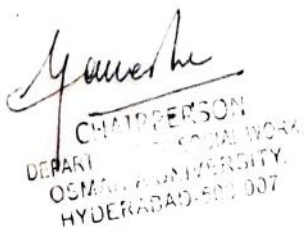 CHAIRPERSON
DEPART SOCIAL WORK
OSMANIA UNIVERSITY,
HYDERABAD-500 007